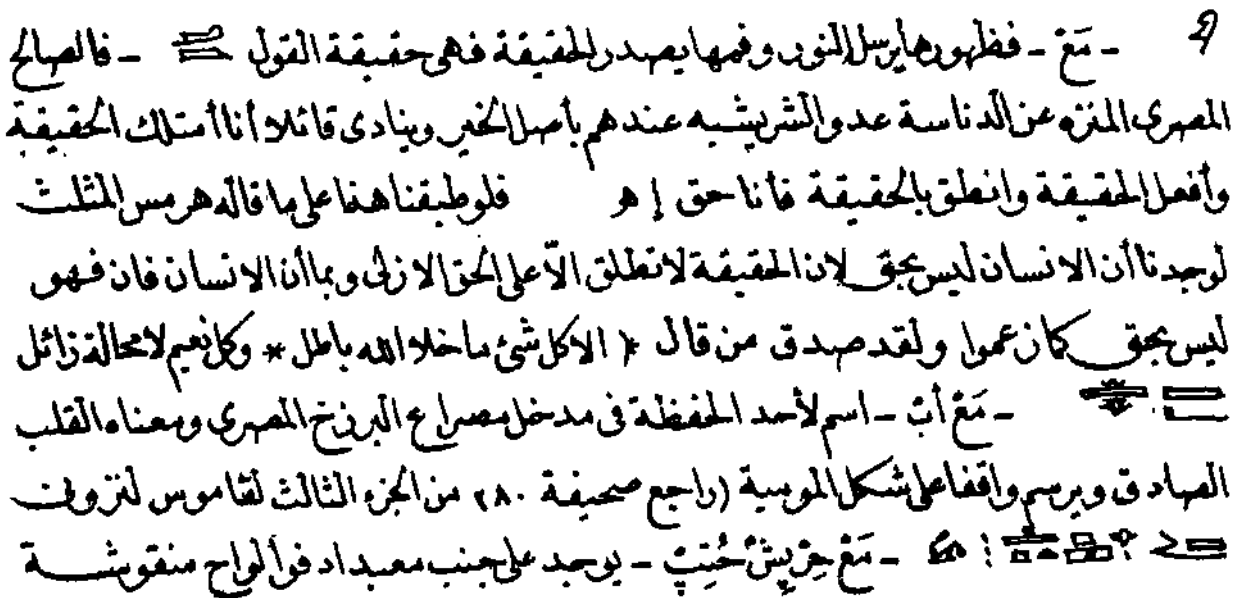 - مَعْ - فظهورها يرسل النور وفمها يصدر الحقيقة فهى حقيقة القول - فالصالح
المصرى المنزه عن الدناسة عدو الشر يشبه عندهم بأصل الخير وينادى قائلا أنا أمتلك الحقيقة
وأفعل الحقيقة وانطق بالحقيقة فأنا حق إ هر فلو طبقنا هذا على ما قاله هرمس المثلث
لوجدنا أن الانسان ليس بحق لان الحقيقة لا تطلق الاّ على الحق الازلى وبما أن الانسان فان فهو
ليس بحق كما زعموا ولقد صدق من قال * الا كل شئ ما خلا الله باطل * وكل نعيم لا محالة زائل
- مَعْ أبْ - اسم لأحد الحفظة فى مدخل مصراع البرزخ المصرى ومعناه القلب
الصادق ويرسم واقفا على شكل المومية (راجع صحيفة ٢٨٠ من الجزء الثالث لقاموس لنزون
- مَعْ حِرْ بِشْ خُنِتِبْ - يوجد على جنب معبد ادفو ألواح منقوشة